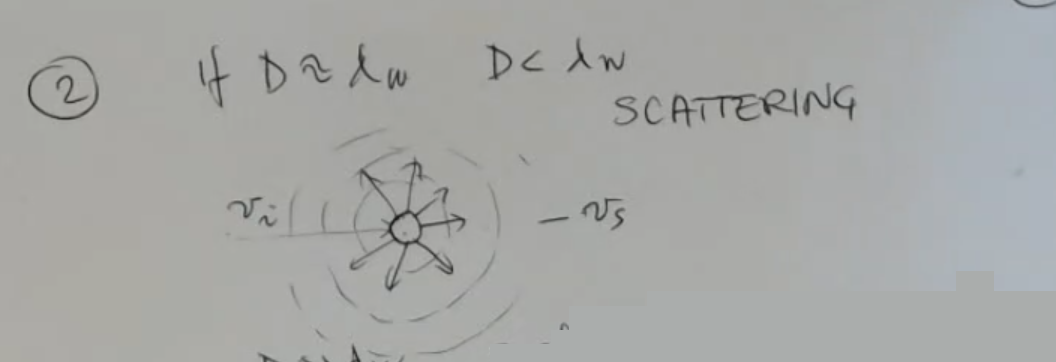 ② If D ≈ λw D < λw
SCATTERING
vi - vs